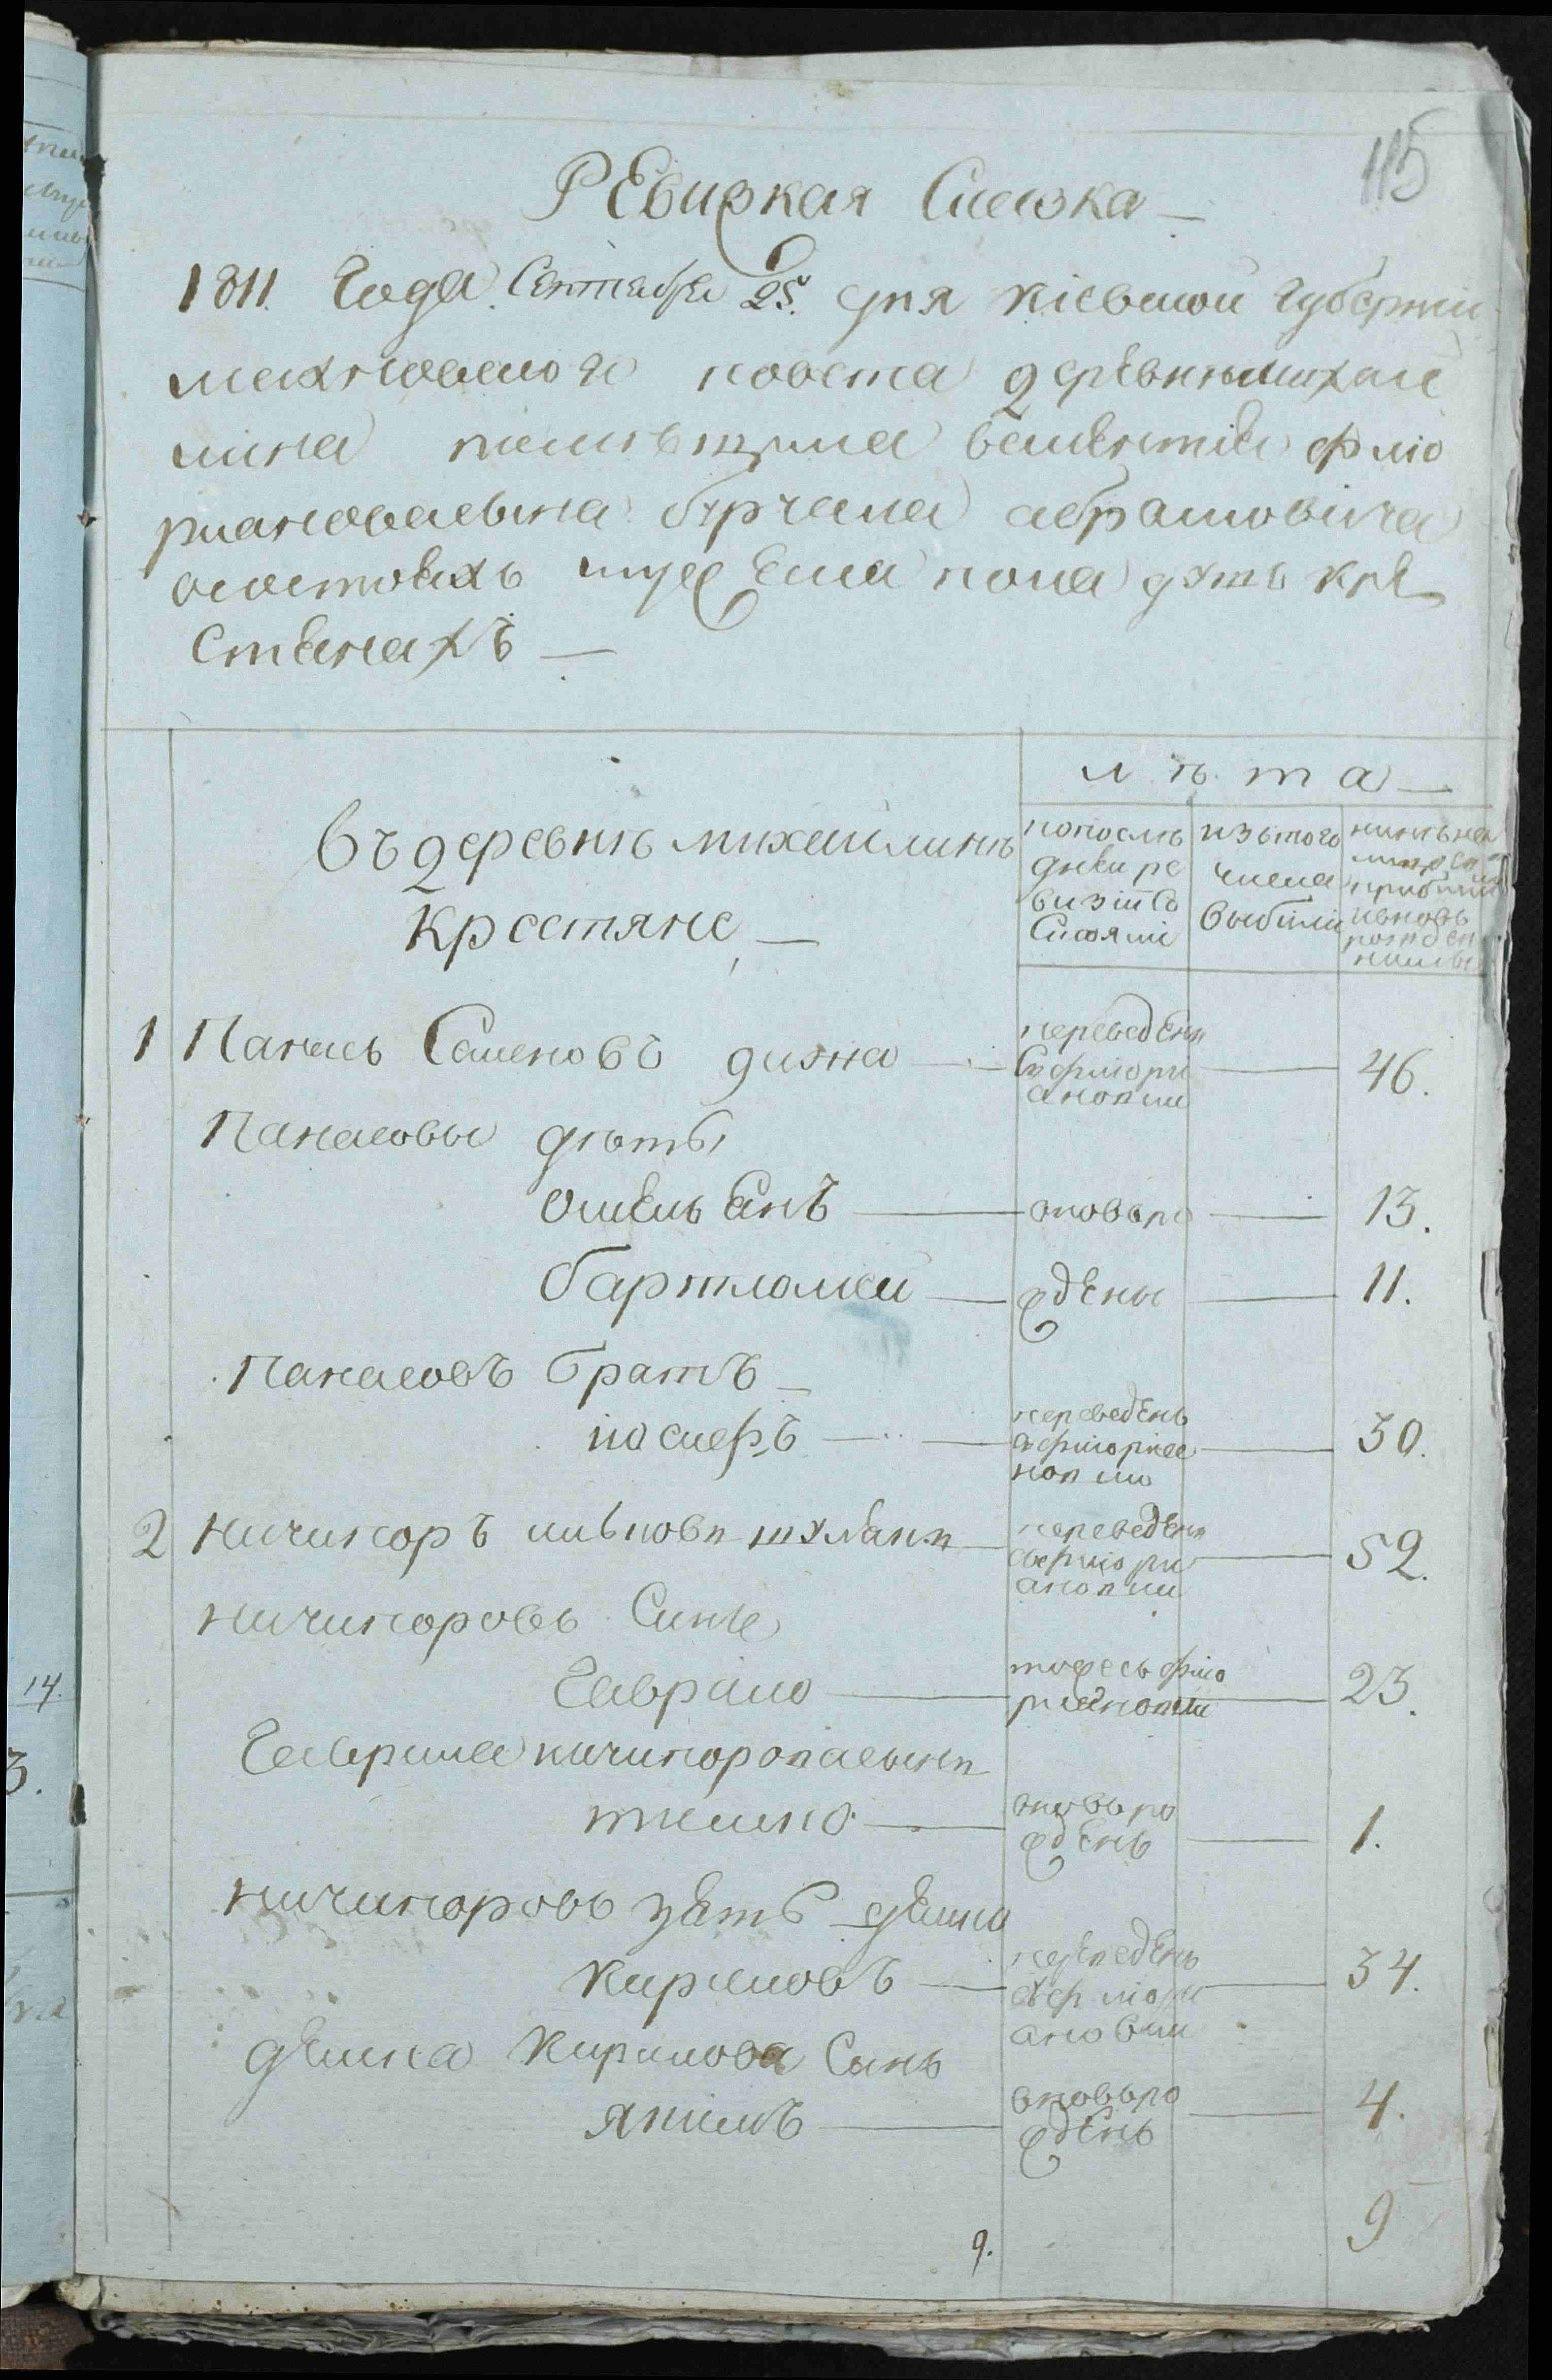 115
РЕвизкая Сказка
1811. Года. Сентабра 25. дня кіевской губерніи
махновского повета деревни михаи
лина помѣщика валентія фло
риановасына бірчала абрамовича
осостоящихъ мужеска пола душъ кре
стянахъ
лѣта
въ деревнѣ михайлинѣ
крестяне
попослѣ
дней ре
визіи со
стояли
изътого
числа
выбыли
нынѣ на
лицо съ
прибылы
ивновь
рожден
ными
1 Панасъ Семеновъ дихна переведенъ
сфлори
ановки
46.
Панасовы дѣты
омельянъ вновьро 13.
бартломей жденые 11.
Панасовъ братъ
переведенъ
сфлориа
новки
30.
2 ничипоръ переведенъ
сфлори
ановки
52.
ничипоровъ Синъ
Гаврило тожесъ фло
риановки
23.
Гаврила ничипоровасынъ
тимко вновьро
жденъ
1.
ничипоровъ зятъ
кириловъ переведенъ
сфлори
ановки
34.
кирилова Сынъ
якимъ вновьро
жденъ
4.
9. 9
14.
3.